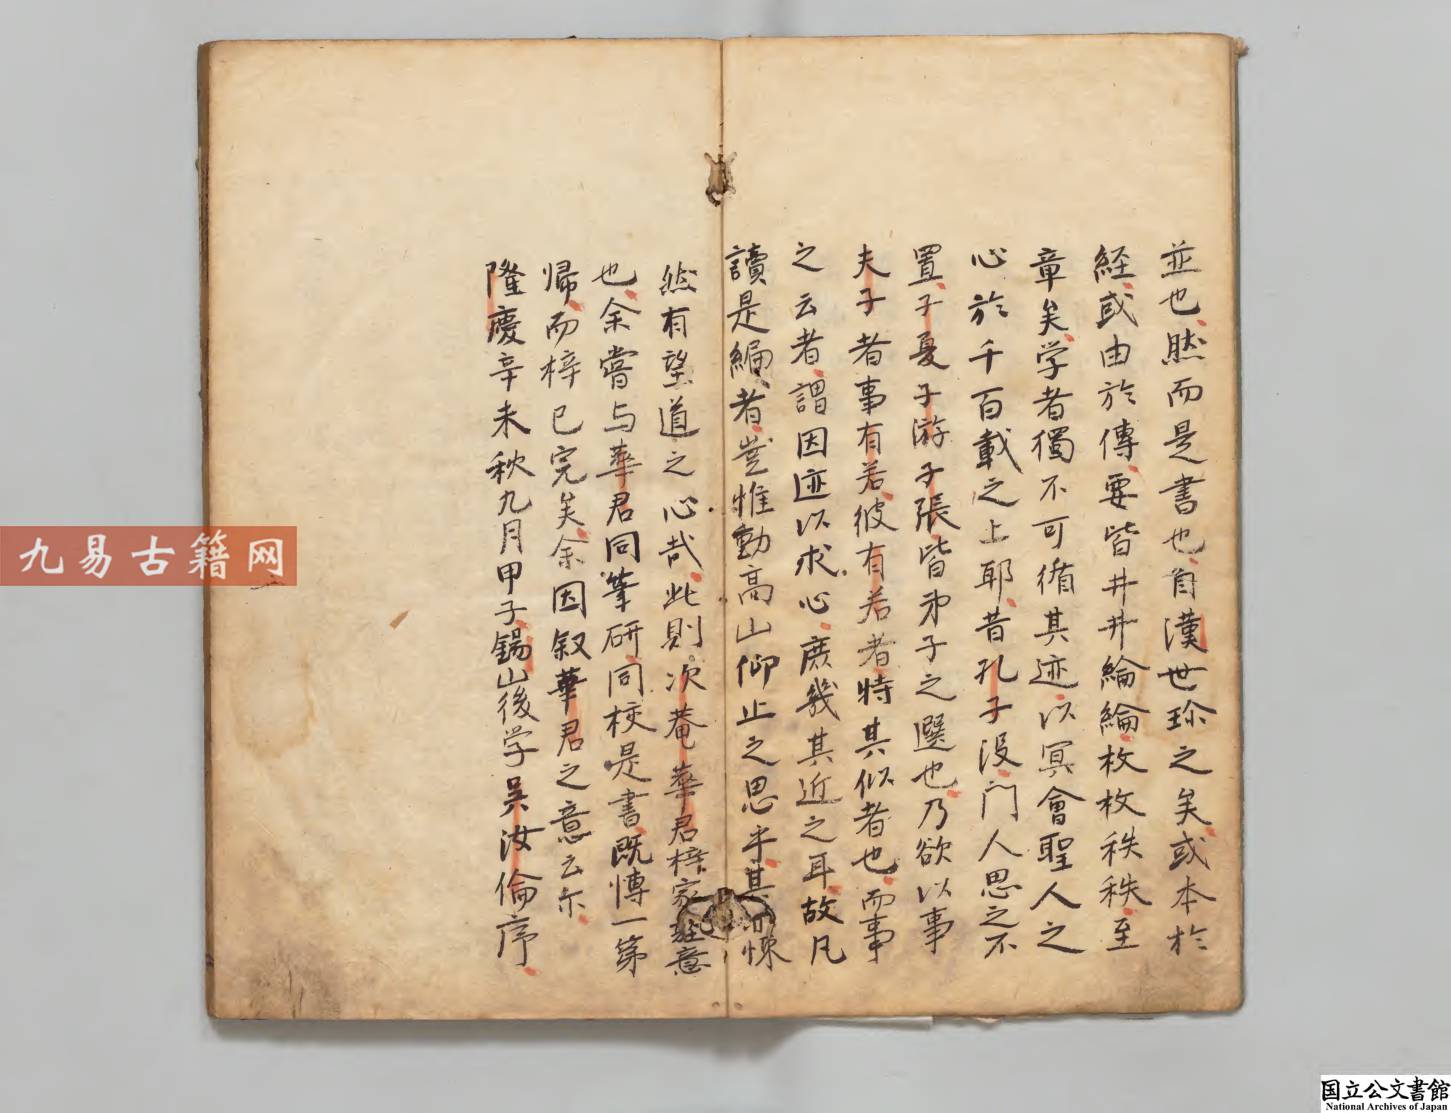 並也然而是書也自漢世珎之矣或本於
経或由於傳要皆井井綸綸枚枚秩秩至
章矣学者獨不可循其迹以冥會聖人之
心於千百載之上耶昔孔子没門人思之不
置子夏子游子張皆弟子之選也乃欲以事
夫子者事有若彼有若者特其似者也而事
之云者謂因迹以求心庶幾其近之耳故凡
讀是編者豈惟動高山仰止之思乎其悚
然有望道之心哉此則次菴華君梓家意
也余嘗与華君同筆研同校是書既慱一第
帰而梓已完矣余因叙華君之意云尓
隆慶辛未秋九月甲子錫山後学吴汝倫序
九易古籍网
国立公文書館
National Archives of Japan